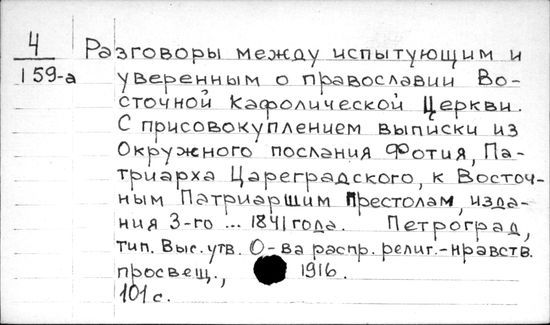 4
159-а
Разговоры между испытующим и
уверенным о православии Во-
сточной Кафолической Церкви.
С присовокуплением выписки из
Окружного послания Фотия, Па-
триарха Цареградского, к Восточ-
ным Патриаршим Престолам, изда-
ния 3-го ... 1841 года. Петроград,
тип. Выс. утв. О-ва распр. религ.-нравств.
просвещ., 1916.
101 с.